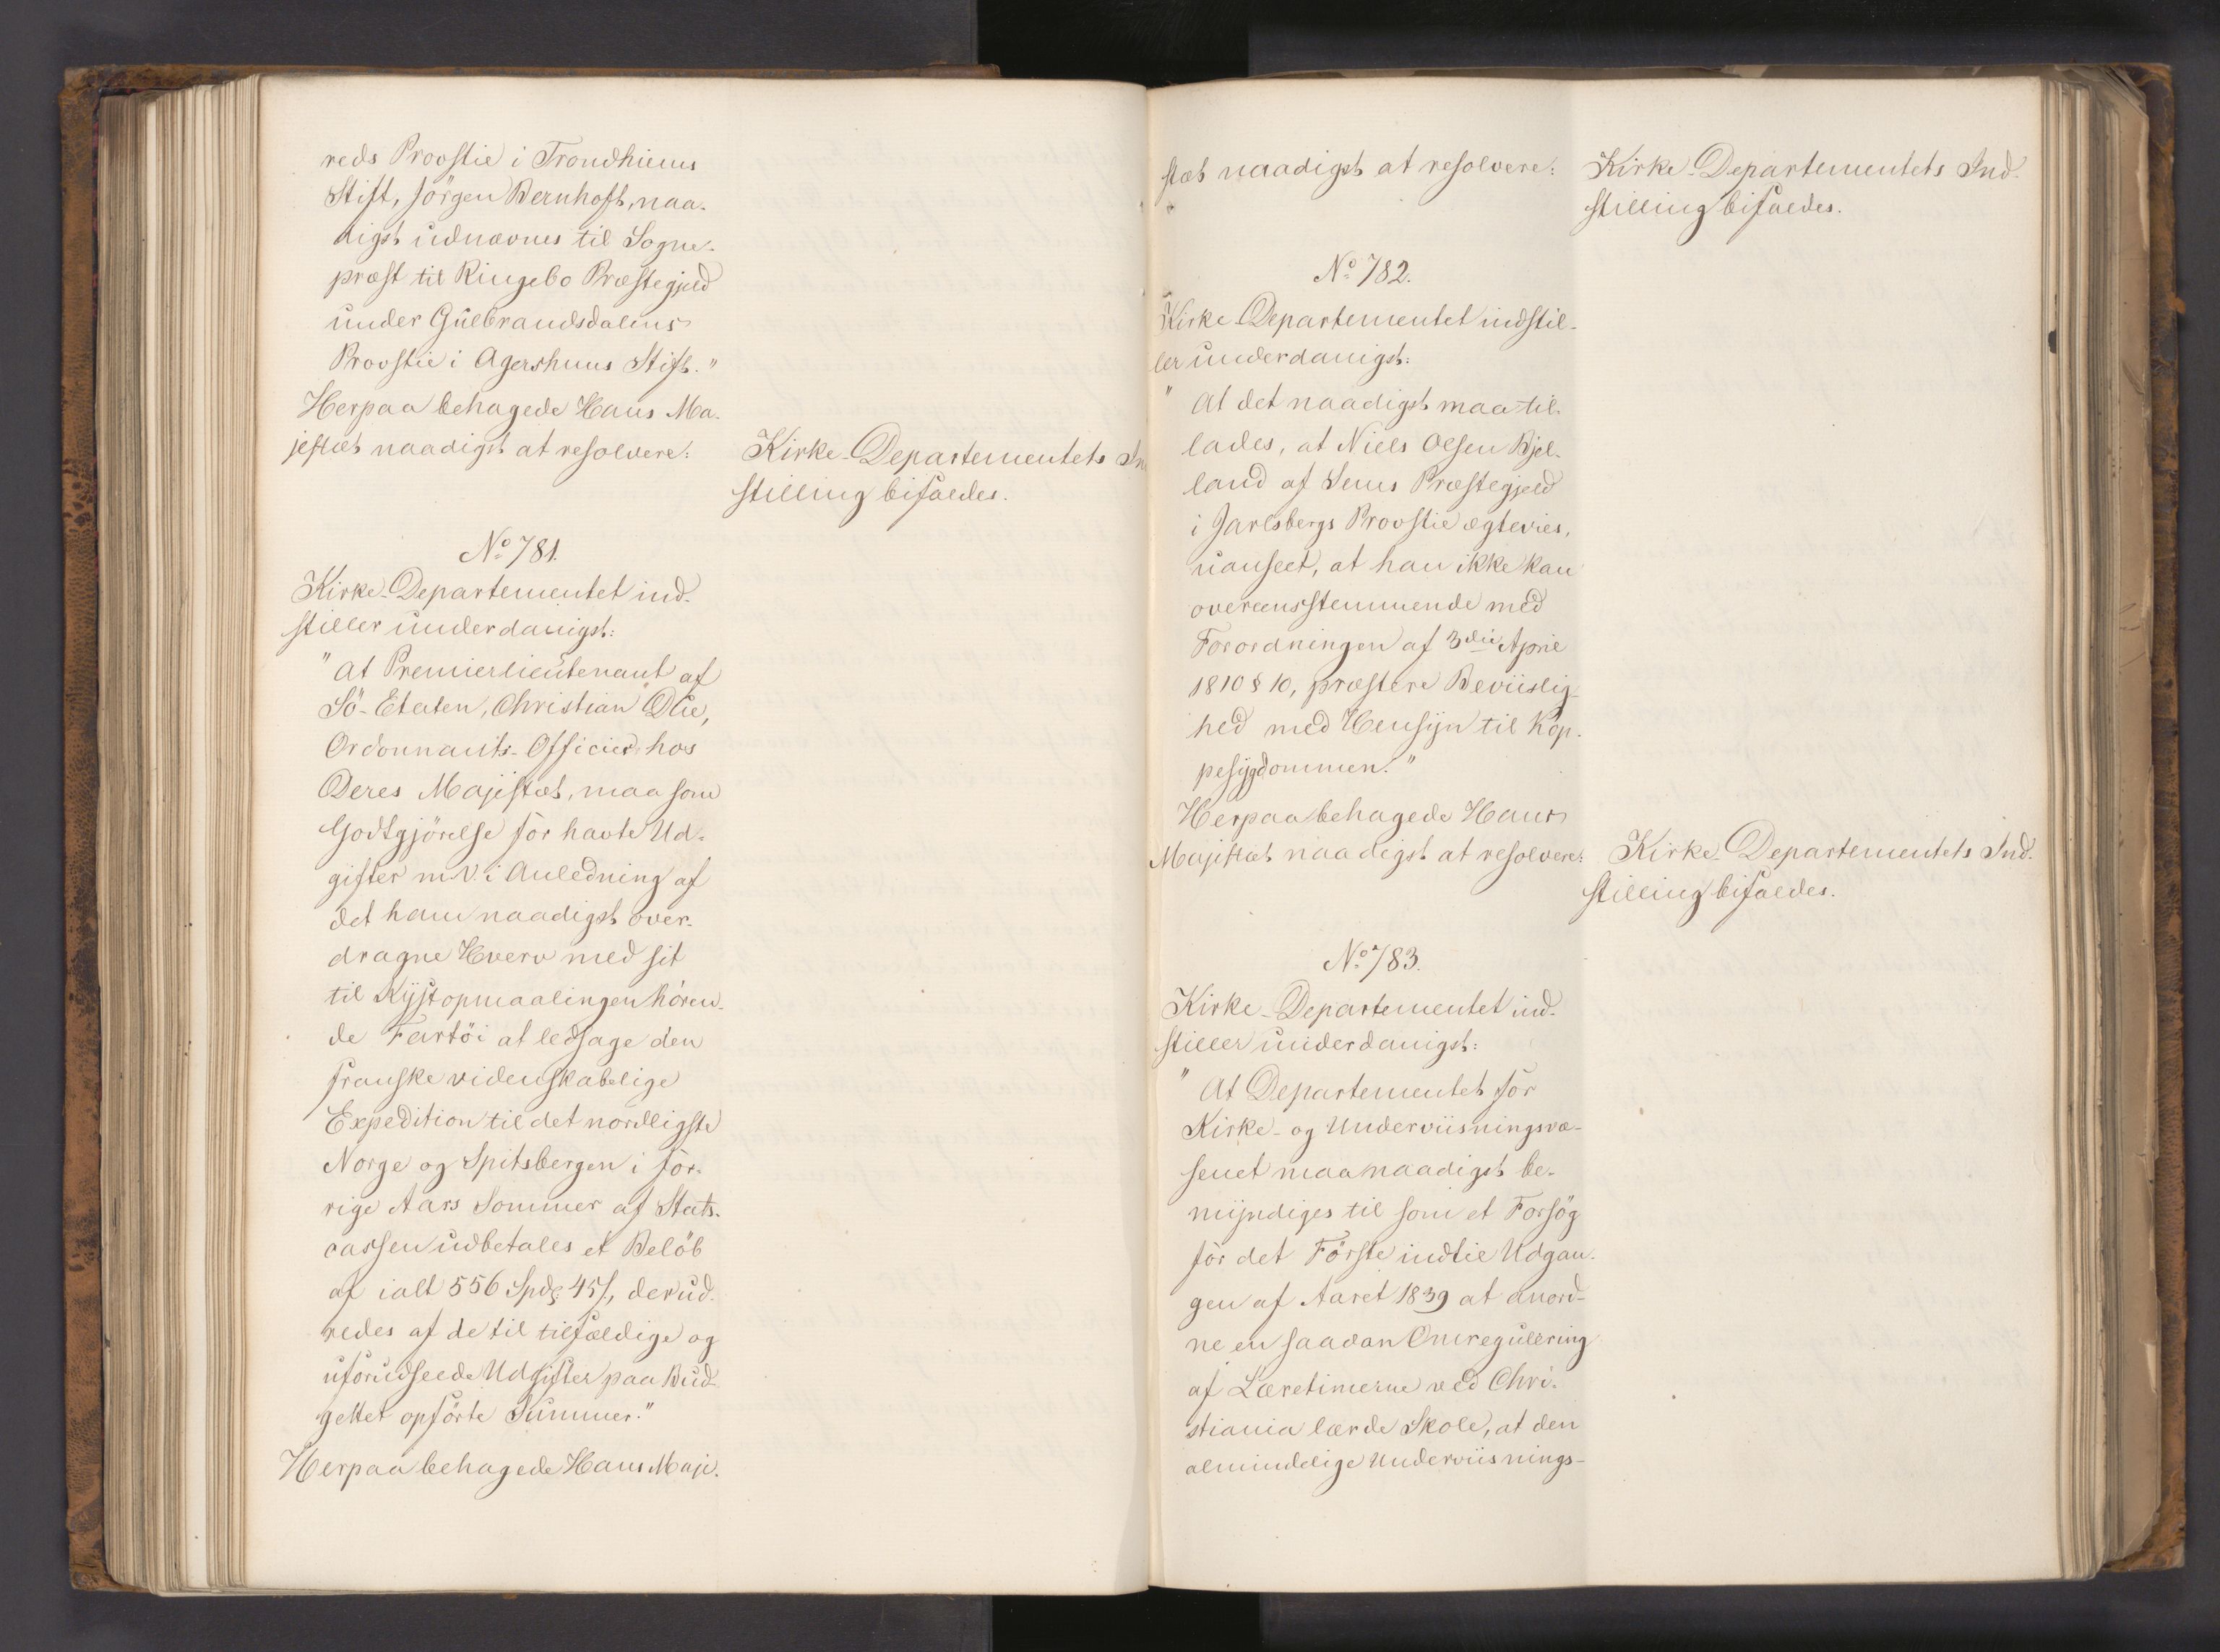 reds Provstie i Trondhiems
Stift, Jörgen Bernhoft, naa-
digst udnævnes til Sogne-
præst til Ringebo Præstegjeld
under Gulbrandsdalens
Provstie i Agershuus Stift."
Herpaa behagede Hans Ma-
jestæt naadigst at resolvere:
Kirke-Departementets In
stilling bifaldes.
No 781.
Kirke-Departementet ind-
stiller underdanigst:
"At Premierlieutenant af
Sö-Etaten, Christian Due,
Ordonnants-Officier hos
Deres Majestæt, maa som
Godtgjörelse for havte Ud-
gifter m.V. i Anledning af
det ham naadigst over-
dragne Hverv med sit
til Kystopmaalingen hören-
de Fartöi at ledsage den
franske videnskabelige
Expedition til det nordligste
Norge og Spitsbergen i for-
rige Aars Sommer af Stats-
cassen udbetales et Belöb
af ialt 556 Spd 45 s, der ud-
redes af de til tilfældige og
uforudseede Udgifter paa Bud-
gettet opförte Summer."
Herpaa behagede Hans Maje-
stæt naadigst at resolvere:
Kirke-Departementets Ind-
stilling bifaldes.
No 782.
Kirke-Departementet indstil-
ler underdanigst:
"At det naadigst maa til-
lades, at Niels Olsen Bjel-
land af Sems Præstegjeld
i Jarlsbergs Provstie ægtevies,
uanseet, at han ikke kan
overeensstemmende med
Forordningen af 3die April
1810 § 10, præstere Beviislig-
hed med Hensyn til Kop-
pesygdommen."
Herpaa behagede Hans
Majestæt naadigst at resolvere:
Kirke-Departementets Ind-
stilling bifaldes.
No 783.
Kirke-Departementet ind-
stiller underdanigst:
"At Departementet for
Kirke- og Underviisningsvæ-
senet maa naadigst be-
myndiges til som et Forsög
for det Förste indtil Udgan-
gen af Aaret 1839 at anord-
ne en saadan Omregulering
af Læretimerne ved Chri-
stiania lærde Skole, at den
almindelige Underviisnings-